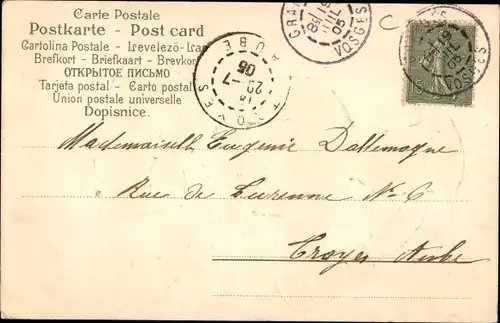 Carte Postale
Postkarte - Post card
Cartolina Postale - Levelező-Lap
Brefkort - Briefkaart - Brevkort
ОТКРЫТОЕ ПИСЬМО
Tarjeta postal - Carto postal
Union postale universelle
Dopisnice.
TROYES AUBE
20 - 7
05
VOSGES
05
VOSGES
05
15
Mademoiselle Eugenie Dallemagne
Rue de Turenne No 6
Troyes Aube